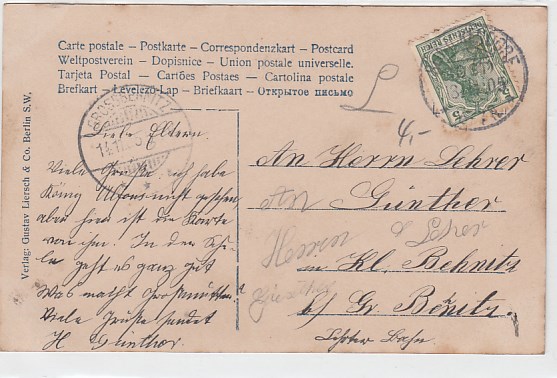 Carte postale – Postkarte – Correspondenzkart – Postcard
Weltpostverein – Dopisnice – Union postale universelle.
Tarjeta Postal – Cartões Postaes – Cartolina postale
Brefkort – Levelezo-Lap – Briefkaart – Открытое письмо
Verlag: Gustav Liersch & Co. Berlin S.W.
DEUTSCHES REICH
5
GROSSBEHNITZ
14.11.
Liebe Eltern.
Viele Grüße, ich habe
König Alfons nicht gesehen
aber hier ist die Karte
von ihm. In der Schu-
le geht es ganz gut
Was macht Großmutter
Viele Grüße sendet
H Günther.
4,-
An Herrn Lehrer
Günther
in Kl. Behnitz
b/ Gr. Behnitz.
Lehrter Bahn.
An
Herrn Lehrer
Günther